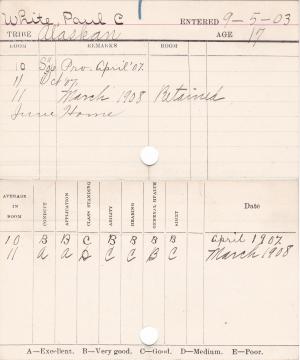 White, Paul C ENTERED 9-5-03
TRIBE Alaskan AGE 17
ROOM REMARKS ROOM
10 Pro. April '07.
11 Oct '07.
11 March 1908 Retained
June Home
AVERAGE IN ROOM CONDUCT APPLICATION CLASS STANDING ABILITY READING GENERAL HEALTH Date
10 B B C B B B B April 1907.
11 A A C C B C March 1908
A—Excellent. B—Very good. C—Good. D—Medium. E—Poor.